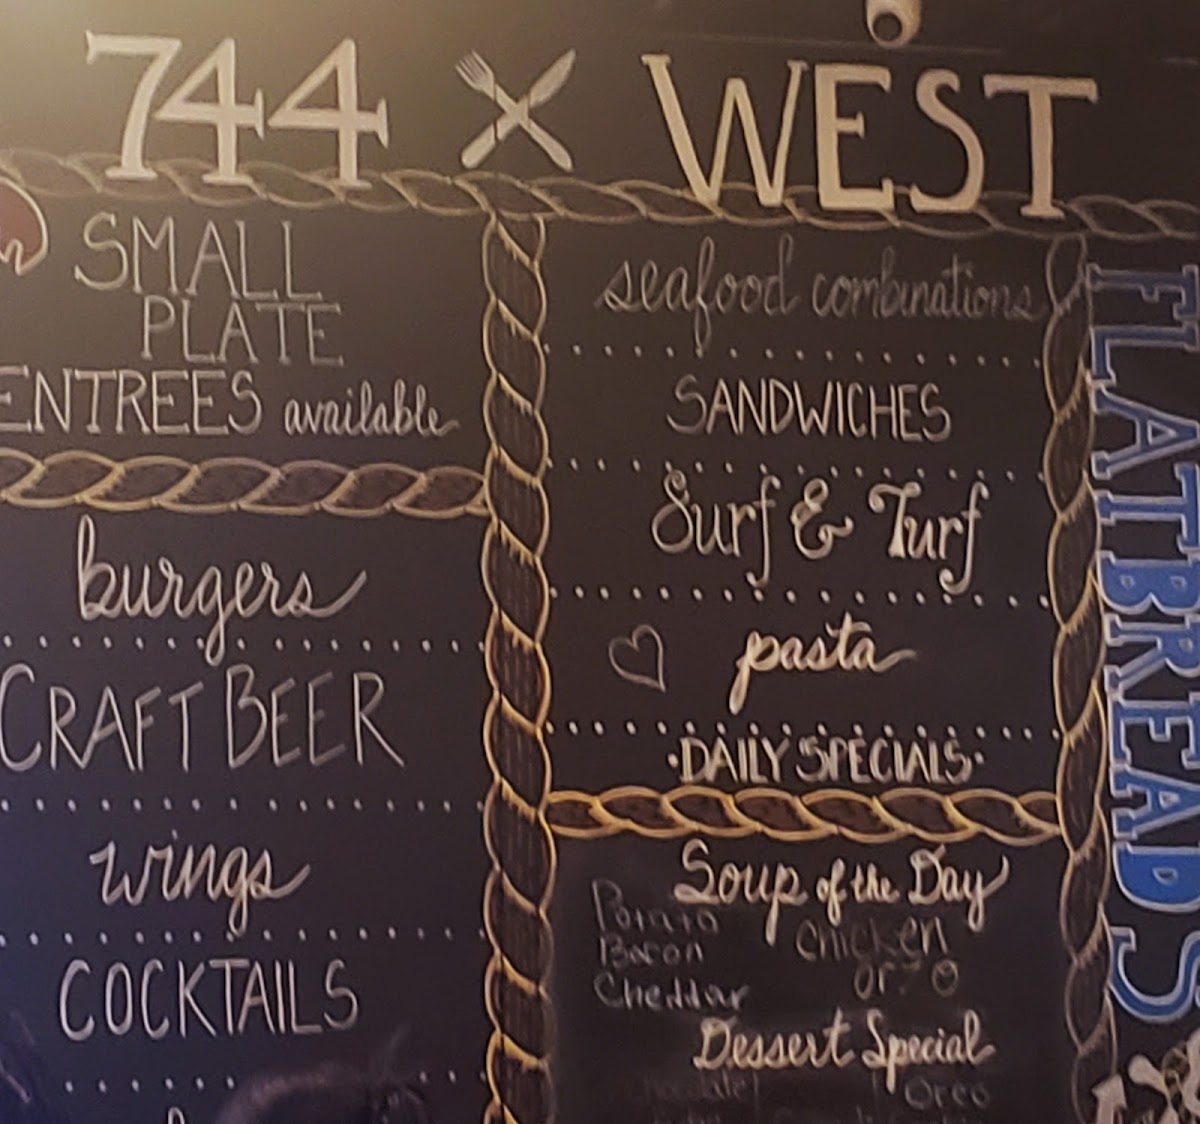 744 WEST
SMALL
PLATE
ENTREES available
burgers
CRAFT BEER
wings
COCKTAILS
seafood combinations
SANDWICHES
Surf & Turf
pasta
·DAILY SPECIALS·
Soup of the Day
Potato
Bacon
Cheddar
Chicken
orzo
Dessert Special
Oreo
FLATBREADS